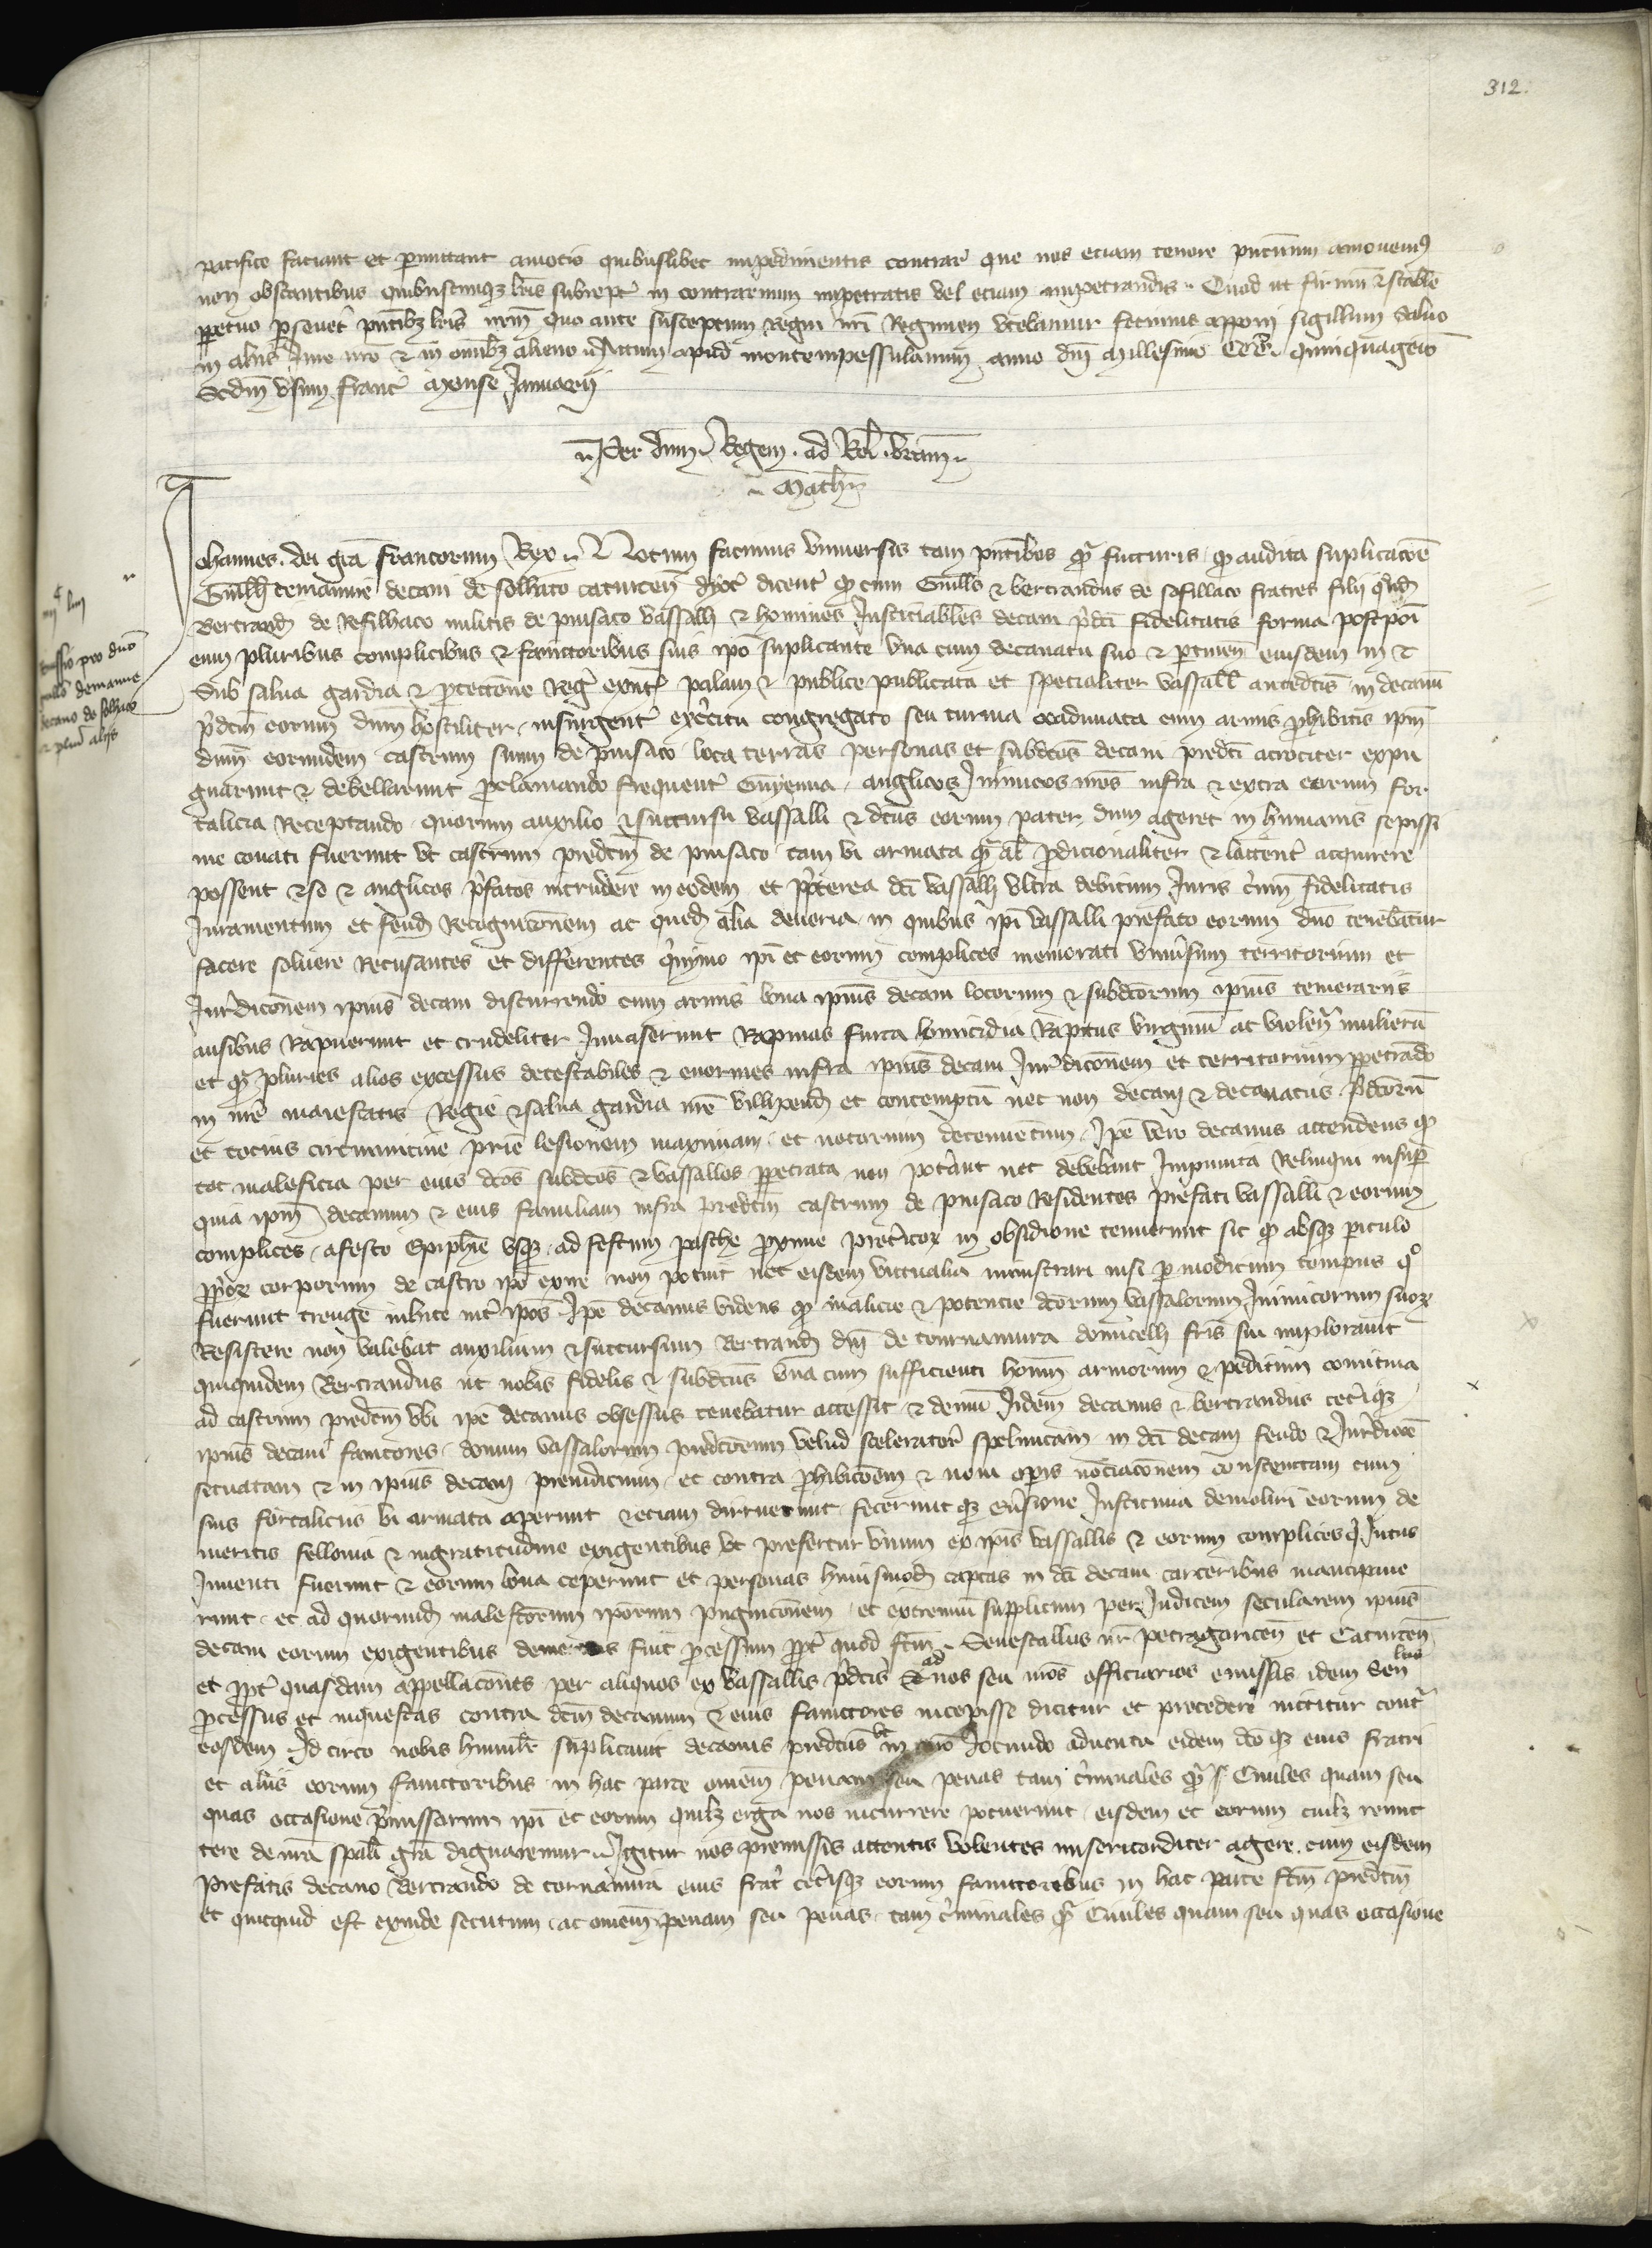 312.
pacifice faciant et permittant amotis quibuslibet impedimentis contrar que nos eciam tenore pncium amovem9
non obstantibus quibuscumqz lris subrept in contrarium impetratis vel eciam impetrandis. Quod ut firmu & stable
ppetuo perseveret pntibz lris nrm quo ante susceptum regni nri Regimen utebamur fecimus apponi sigillum Salvo
in aliis Jure nro & in omibz alieno Actum apud montempessulanum anno dni Millesimo CCCo quinquagesio
Scdm usum franc Mense Januarij
Per dnm Regem. ad Rel. vram
Math
Johannes. dei gra francorum Rex Notum facimus universis tam pntibus qr futturis qd audita suplicacoe
Guilli demanne decani de solhaco caturcen dyoc dicent qd cum Guills & bertrandus de rofillaco fratres filii qnd
Bertrandi de Rofilhaco militis de pinsaco vassalli & homines Justiciabiles decani pdci fidelitatis forma postpoi
cum pluribus complicibus & fauttoribus suis ipo suplicante una cum decanatu suo & ptinen eiusdem in &
sub salva gardia & pteccione Regr exnte palam & publice publicata et specialiter vassall antedcis in decanu
pdcm eorum dnm hostiliter insurgent exercitu congregato seu turma coadunata cum armis phibitis ipm
dnm eorumdem castrum suum de pinsaco loca terras personas et subdtos decani predci atrociter expu
gnarunt & debellarunt pclamando frequent Guyenna anglicos Inimicos nros infra & extra earum for
talicia Receptando quorum auxilio & succursu vassalli & dcus eorum pater dum ageret in humanis sepissi
me conati fuerunt ut castrum predcm de pinsaco tam vi armata qr al pdicionaliter & lattent acquirere
possent & se & anglicos pfatos intrudere in eodem et ppterea dci vassalli ultra debitum Juris cium fidelitatis
Juramentum et feud Recognicionem ac qued alia deveria in quibus ipi vassalli prefato eorum dno tenebatur
facere solvere Recusantes et differentes qnymo ipi et eorum complices memorati universum territorium et
Jurdiconem ipius decani discurrendo cum armis bona ipius decani locorum & subdcorum ipius temerariis
ausibus Rapuerunt et crudeliter Invaserunt Rapinas furta homicidia Raptus virginu ac violen mulieru
et qr pluries alios excessus detestabiles & enormes infra ipius decani Jurdiconem et territorium ppetrado
in nre maiestatis Regie & salva gardia nre villipend et contemptu nec non decani & decanatus pdcoru
et tocius circumvicine prie lesionem maximam et notorium detrimentum. Ipe vero decanus attendens qd
tot maleficia per eius dcos subdcos & vassallos ppetrata non poterant nec debebant Impunita Relinqui insup
quia ipm decanum & eius familiam infra predcm castrum de pinsaco Residentes prefati vassalli & eorum
complices a festo Epiphie usqz ad festum pasche pxime preteritor in obsidione tenuerunt sic qd absqz piculo
ppior corporum de castro ipo exire non potuit nec eisdem victualia ministrari nisi p modicum tempus qo
fuerunt treuge inhite int ipos. Ipe decanus videns qd malicie & potencie dcorum vassalorum Inimicorum suorum
Resistere non valebat auxilium & succursum Bertrandi dni de cornamura domicelli fris sui imploravit
quiquidem Bertrandus ut nobis fidelis & subdcus una cum sufficienti homm armorum & peditum comitiva
ad castrum predcm ubi ipe decanus obsessus tenebatur accessit & demu Idem decanus & bertrandus ceteriqz
ipius decani fautores domum vassalorum predcorum velud sceleratorum speluncam in dci decani feudo & Jurdicoe
situatam & in ipius decani preiudicium et contra phibicoem & novi opis nociaconem constructam cum
suis fortaliciis vi armata ceperunt & eciam dirruerunt feceruntqz
meritis fellonia & ingratitudine exigentibus ut prefertur unum ex ipis vassallis & eorum complices qi Intus
Inventi fuerunt & eorum bona ceperunt et personas huiusmodi captas in dci decani carceribus mancipave
runt et ad quorumd malefactorum ipsorum punicionem et extremum supplicium per Judicem secularem ipius
decani eorum exigentibus demeritis fuit pcessum ppt quod fcm Senescallus nr petragoricen et Caturcen
et ppt quasdam appellacones per aliquos ex vassallis pdcis ad nos seu nros officiarios emissis idem Sen
pcessus et inquestas contra dcm decanum & eius fauttores incepisse dicitur et procedere nititur contr
eosdem Idcirco nobis humilr suplicavit decanus predcus ut in nro Jocundo adventu eidem dcoqz eius fratri
et aliis eorum fauttoribus in hac parte omem penam seu penas tam ciminales qr Civiles quam seu
quas occasione pmissarum ipi et eorum quilbz erga nos incurrere potuerunt eisdem et eorum cuilbz remit
tere de nra spali gra dignaremur Igitur nos premissis attentis volentes misericorditer agere cum eisdem
Prefatis decano Bertrando de cornamura eius fratr ceterisqz eorum fauttoribus in hac parte fcm predcm
et quicquid est exinde secutum ac omem penam seu penas tam ciminales qr Civiles quam seu quas occasione